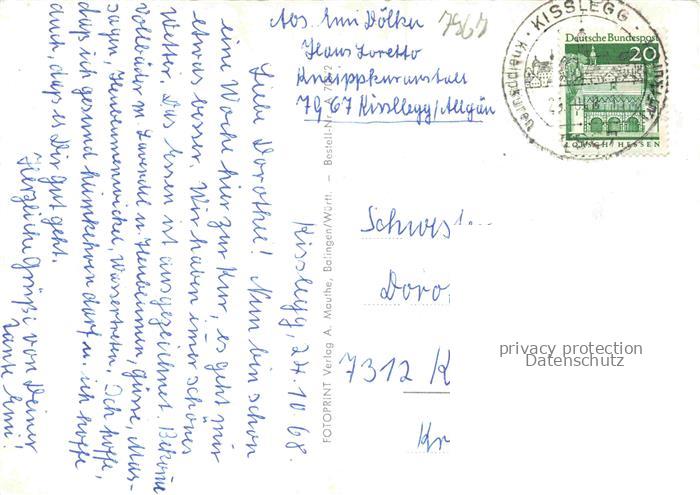 Abs. Emi Dölker
Haus Loretto
Kneippkuranstalt
7967 Kisslegg/Allgäu
7967
KISSLEGG
Deutsche Bundespost
20
LORSCH/HESSEN
Kisslegg, 24.10.68.
Liebe Dorothee! Nun bin schon
eine Woche hier zur Kur, es geht mir
etwas besser. Wir haben immer schönes
Wetter. Das Essen ist ausgezeichnet. Bekomme
Vollbäder m. Lavendel u. Heublumen, Güsse, Mas-
sagen, Heublumenwickel, Wassertreten. Ich hoffe,
daß ich gesund heimkehren darf u. ich hoffe
auch, daß es Dir gut geht.
Herzliche Grüße von Deiner
Tante Emi!
FOTOPRINT Verlag A. Mauthe, Balingen/Württ. – Bestell-Nr.
Schwes
Doro
7312 K
Kr
privacy protection
Datenschutz